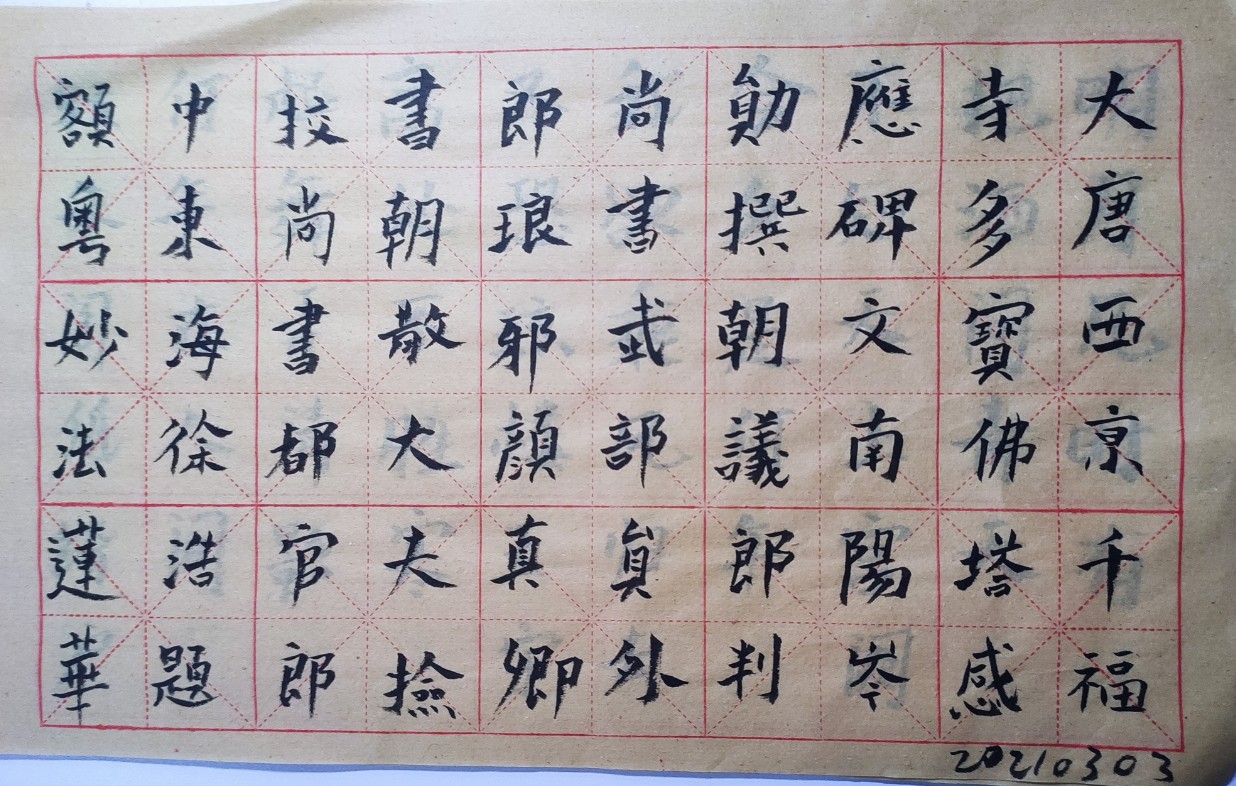 大唐西亰千福
寺多寶佛塔感
應碑文南陽岑
勛撰朝議郎判
尚書武部員外
郎琅邪顏真卿
書朝散大夫撿
挍尚書都官郎
中東海徐浩題
額粵妙法蓮華
20210303